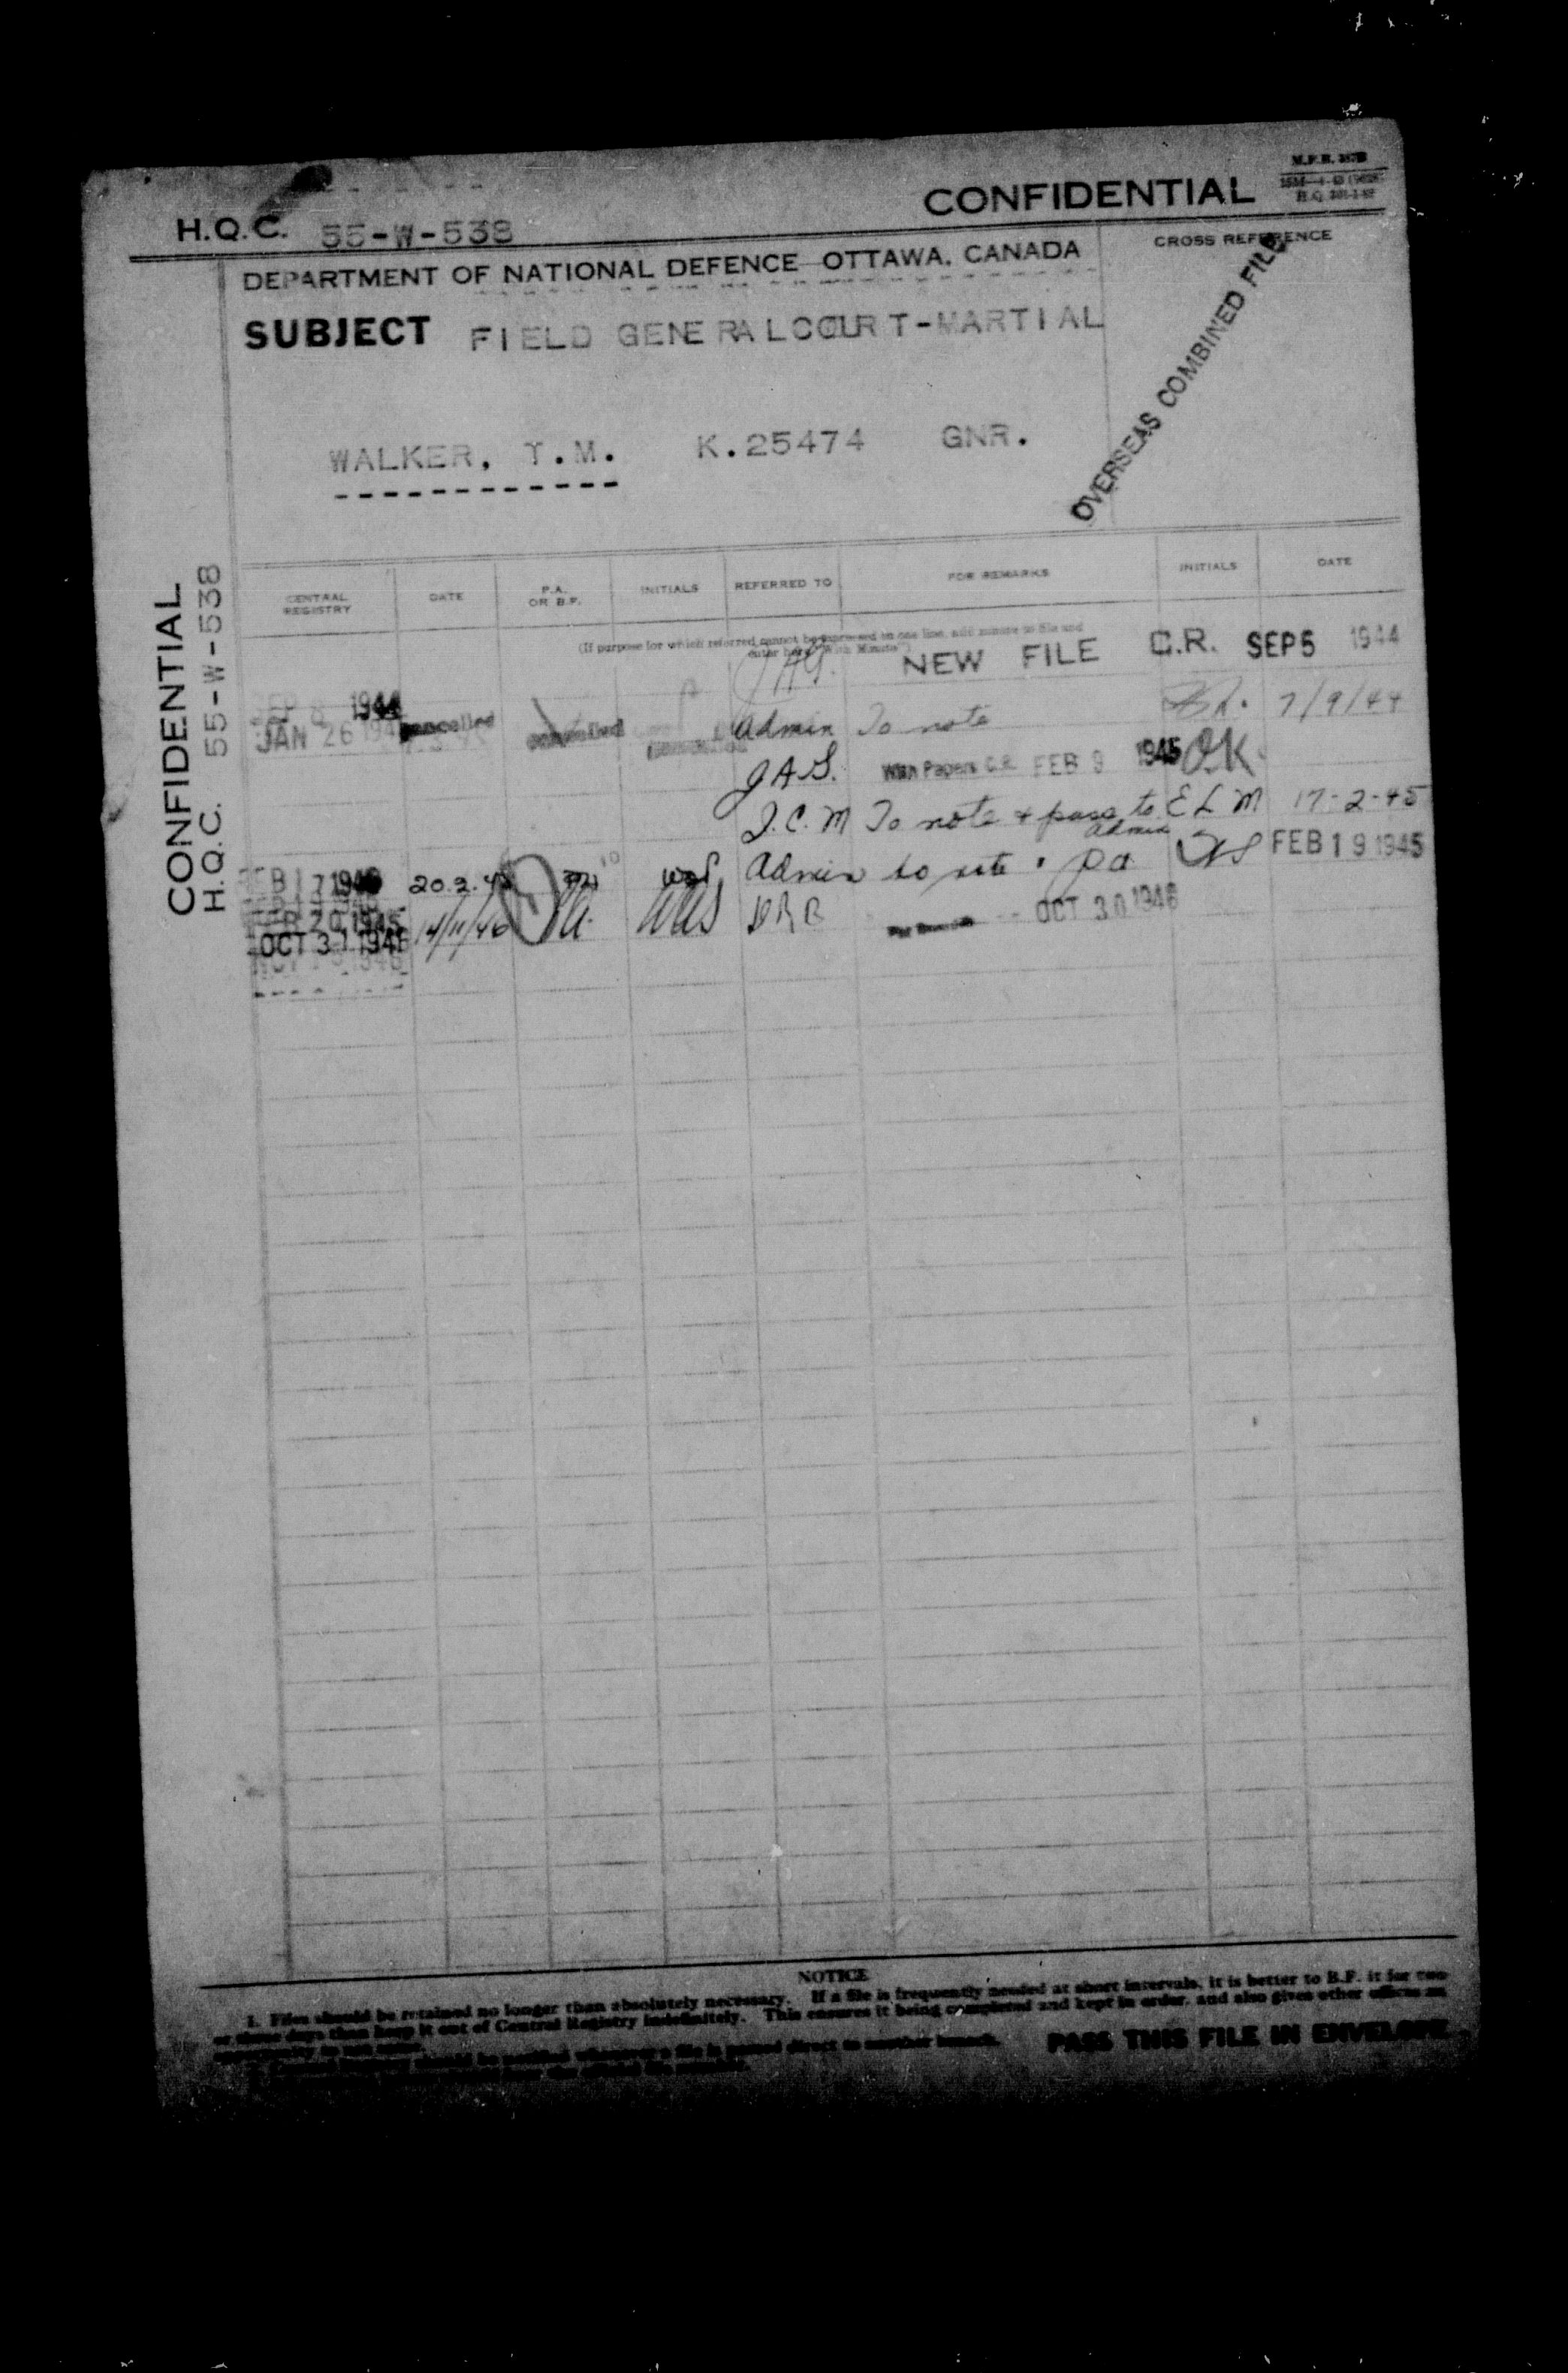 CONFIDENTIAL
H.Q.C. 55-W-538
DEPARTMENT OF NATIONAL DEFENCE OTTAWA, CANADA
CROSS REFERENCE
SUBJECT FIELD GENERAL COURT-MARTIAL
OVERSEAS COMBINED FILE
WALKER, T.M. K.25474 GNR.
CONFIDENTIAL
H.Q.C. 55-W-538
CENTRAL REGISTRY DATE P.A. OR B.F. INITIALS REFERRED TO FOR REMARKS INITIALS DATE
(If purpose for which referred cannot be expressed on one line, add minute to file and
enter here "With Minute")
JAG. NEW FILE C.R. SEP 5 1944
1944
JAN 26 Cancelled Cancelled Admin To note 7/9/44
J.A.G. With Papers C.R. FEB 9 1945
J.C.M To note & pass to Admin E L M 17-2-45
Admin to note . pa FEB 19 1945
20.2.45
FEB 20 1945
OCT 31 1946 14/11/46 OCT 30 1946
NOTICE
1. Files should be retained no longer than absolutely necessary. If a file is frequently needed at short intervals, it is better to B.F. it for two
or three days than keep it out of Central Registry indefinitely. This ensures it being completed and kept in order, and also gives other offices an
should be notified whenever a file is passed direct to another branch.
PASS THIS FILE IN ENVELOPE